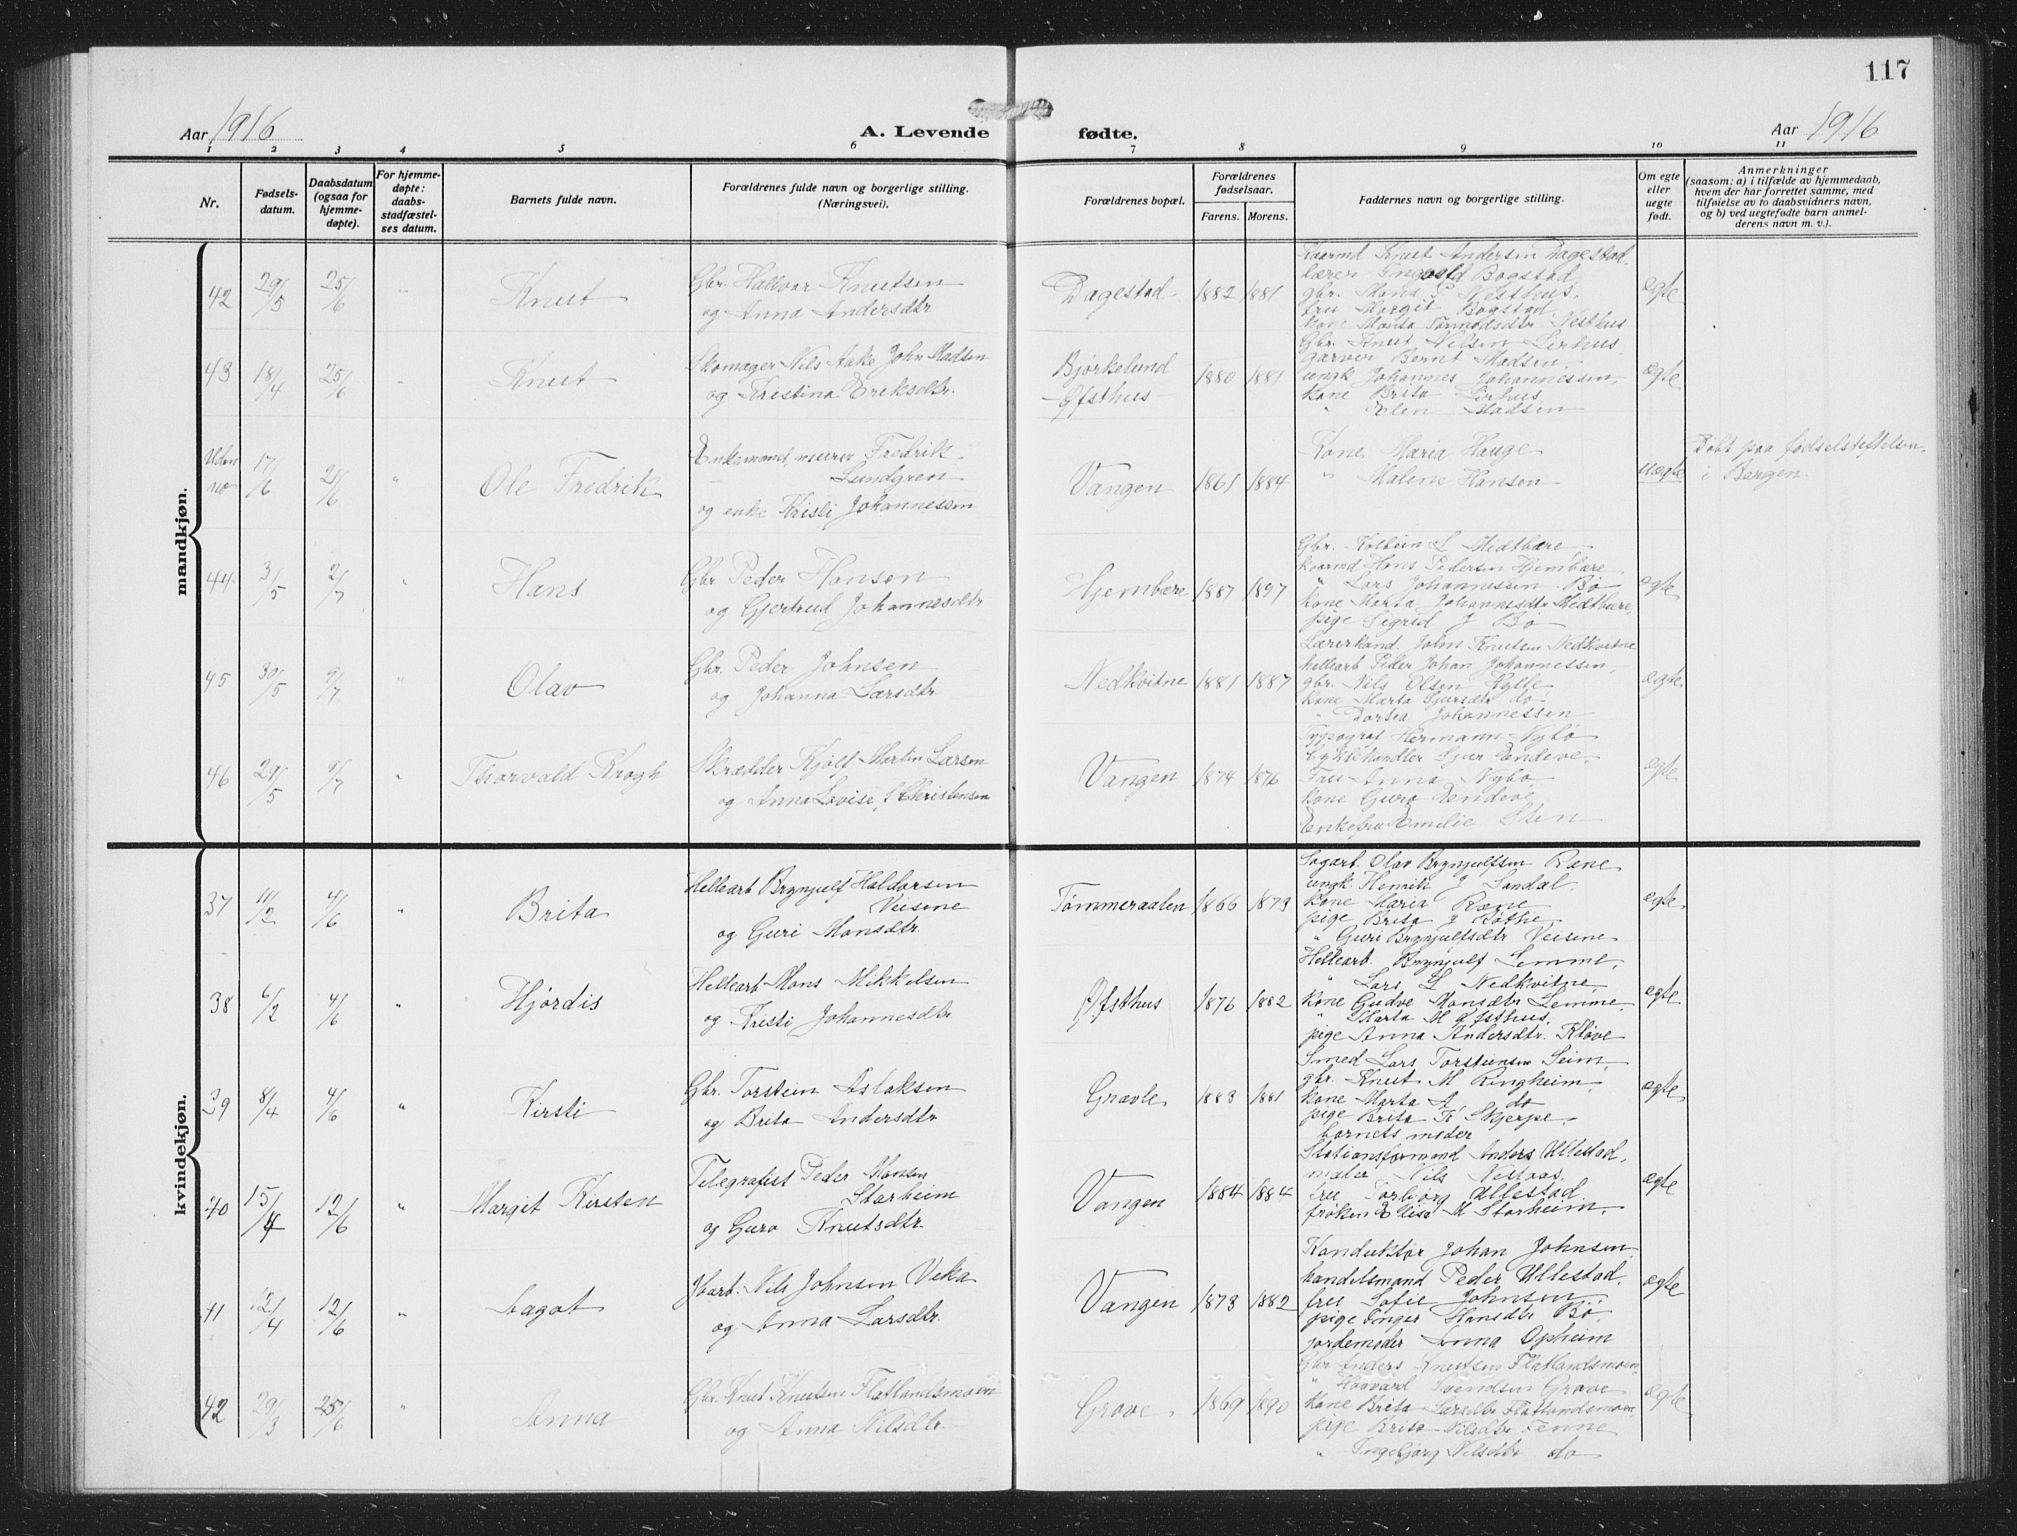 117
Aar 1916 A. Levende fødte. Aar 1916
1 2 3 4 5 6 7 8 9 10 11
Nr.
Fødsels-
datum.
Daabsdatum
(ogsaa for
hjemme-
døpte).
For hjemme-
døpte:
daabs-
stadfæstel-
ses datum.
Barnets fulde navn.
Forældrenes fulde navn og borgerlige stilling.
(Næringsvei).
Forældrenes bopæl.
Forældrenes
fødselsaar.
Farens. Morens.
Faddernes navn og borgerlige stilling.
Om egte
eller
uegte
født.
Anmerkninger
(saasom: a) i tilfælde av hjemmedaab,
hvem der har forrettet samme, med
tilføielse av to daabsvidners navn,
og b) ved uegtefødte barn anmel-
derens navn m. v.).
mandkjøn.
42 29/5 25/6 " Knut
Gbr. Hallvar Knutsen
og Anna Andersdtr.
Dagestad 1882 1881
Kaarmd Knut Andersen Dagestad.
lærer Ingvald Bogstad
gbr. Mons P. Nesthus,
fru Margit Bogstad
kone Marta Tormodsdtr Nesthus
egte
43 18/4 25/6 " Knut
Skomager Nils Aake John Madsen
og Kristina Eriksdtr.
Bjørkelund
Øfsthus
1880 1881
Gbr. Knut Nilsen Lirhus
garver Bernt Madsen,
ungk Johannes Johannessen,
kone Brita Lirhus,
" Elen Madsen
egte
Uden
no 17/6 21/6 " Ole Fredrik
Enkemand, murer Fredrik
Lundgren
og enke Kristi Johannessen
Vangen 1861 1884
Kone Maria Hauge
" Malene Hansen
uegte
Døbt paa fødselsstiftelsen
i Bergen.
44 3/5 2/7 " Hans
Gbr. Peder Hansen
og Gjertrud Johannesdtr
Hjembære 1887 1897
Gbr. Kolbein L Medtbøre
kaarmd Hans Pedersen Hjembære,
" Lars Johannessen Bø
kone Marta Johannesdtr Midtbære,
pige Sigrid J Bø
egte
45 30/5 9/7 " Olav
Gbr. Peder Johnsen
og Johanna Larsdtr.
Nedkvitne 1881 1887
Lærerkand. John Knutsen Nedkvitne
hellearb Peder Johan Johannessen,
gbr. Nils Olsen Kylle
kone Marta Sjursdtr do
" Dortea Johannessen
egte
46 29/5 9/7 " Thorvald Krogh
Skrædder Kjølf Martin Larsen
og Anna Lovise Kristensen
Vangen 1874 1876
Typograf Hermann Nybø
Cyklehandler Sjur Endeve,
Fru Anna Nybø
kone Guro Endeve,
Enkefru Emilie Sten
egte
kvindekjøn.
37 11/2 4/6 " Brita
Hellearb Brynjulf Haldorsen
Veisene
og Guri Monsdtr.
Tømmeraalen 1866 1873
Sagarb. Olav Brynjulfsen Røne
ungk. Henrik J Sandal,
kone Maria Røne
pige Brita J Rothe
" Guri Brynjulfsdtr Veisene
egte
38 6/2 4/6 " Hjørdis
Hellearb Mons Mikkelsen
og Kristi Johannesdtr
Øfsthus 1876 1882
Hellearb. Brynjulf Lemme,
" Lars L Nedkvitne,
kone Gudve Monsdtr Lemme,
" Marta M Øfsthus,
pige Anna Andersdtr. Kløve
egte
39 8/4 4/6 " Kirsti
Gbr. Torstein Aslaksen
og Brita Andersdtr
Gravle 1883 1881
Smed Lars Torsteinsen Seim,
gbr. Knut M Ringheim,
kone Marta A do
pige Brita K Skjerpe,
barnets moder
egte
40 15/4 12/6 " Margit Kirsten
Telegrafist Peder Monsen
Starheim
og Guro Knutsdtr.
Vangen 1884 1884
Stationsformand Anders Ullestad,
maler Nils Nestaas,
fru Torbjørg Ullestad
frøken Elise M Starheim,
egte
41 12/4 12/6 " Aagot
Jbarb. Nils Johnsen Veka
og Anna Larsdtr.
Vangen 1873 1882
Konduktør Johan Johnsen
handelsmand Peder Ullestad,
fru Sofie Johnsen,
pige Inger Hansdtr Bø,
jordemoder Anna Opheim
egte
42 29/3 25/6 " Anna
Gbr. Knut Knutsen Flatlandsmoen
og Anna Nilsdtr.
Grove 1869 1890
Gbr. Anders Knutsen Flatlandsmoen,
" Haavard Svendsen Grove
kone Brita Larsdtr Flatlandsmoen,
pige Brita Nilsdtr Fenne
" Ingebjørg Nilsdtr do
egte